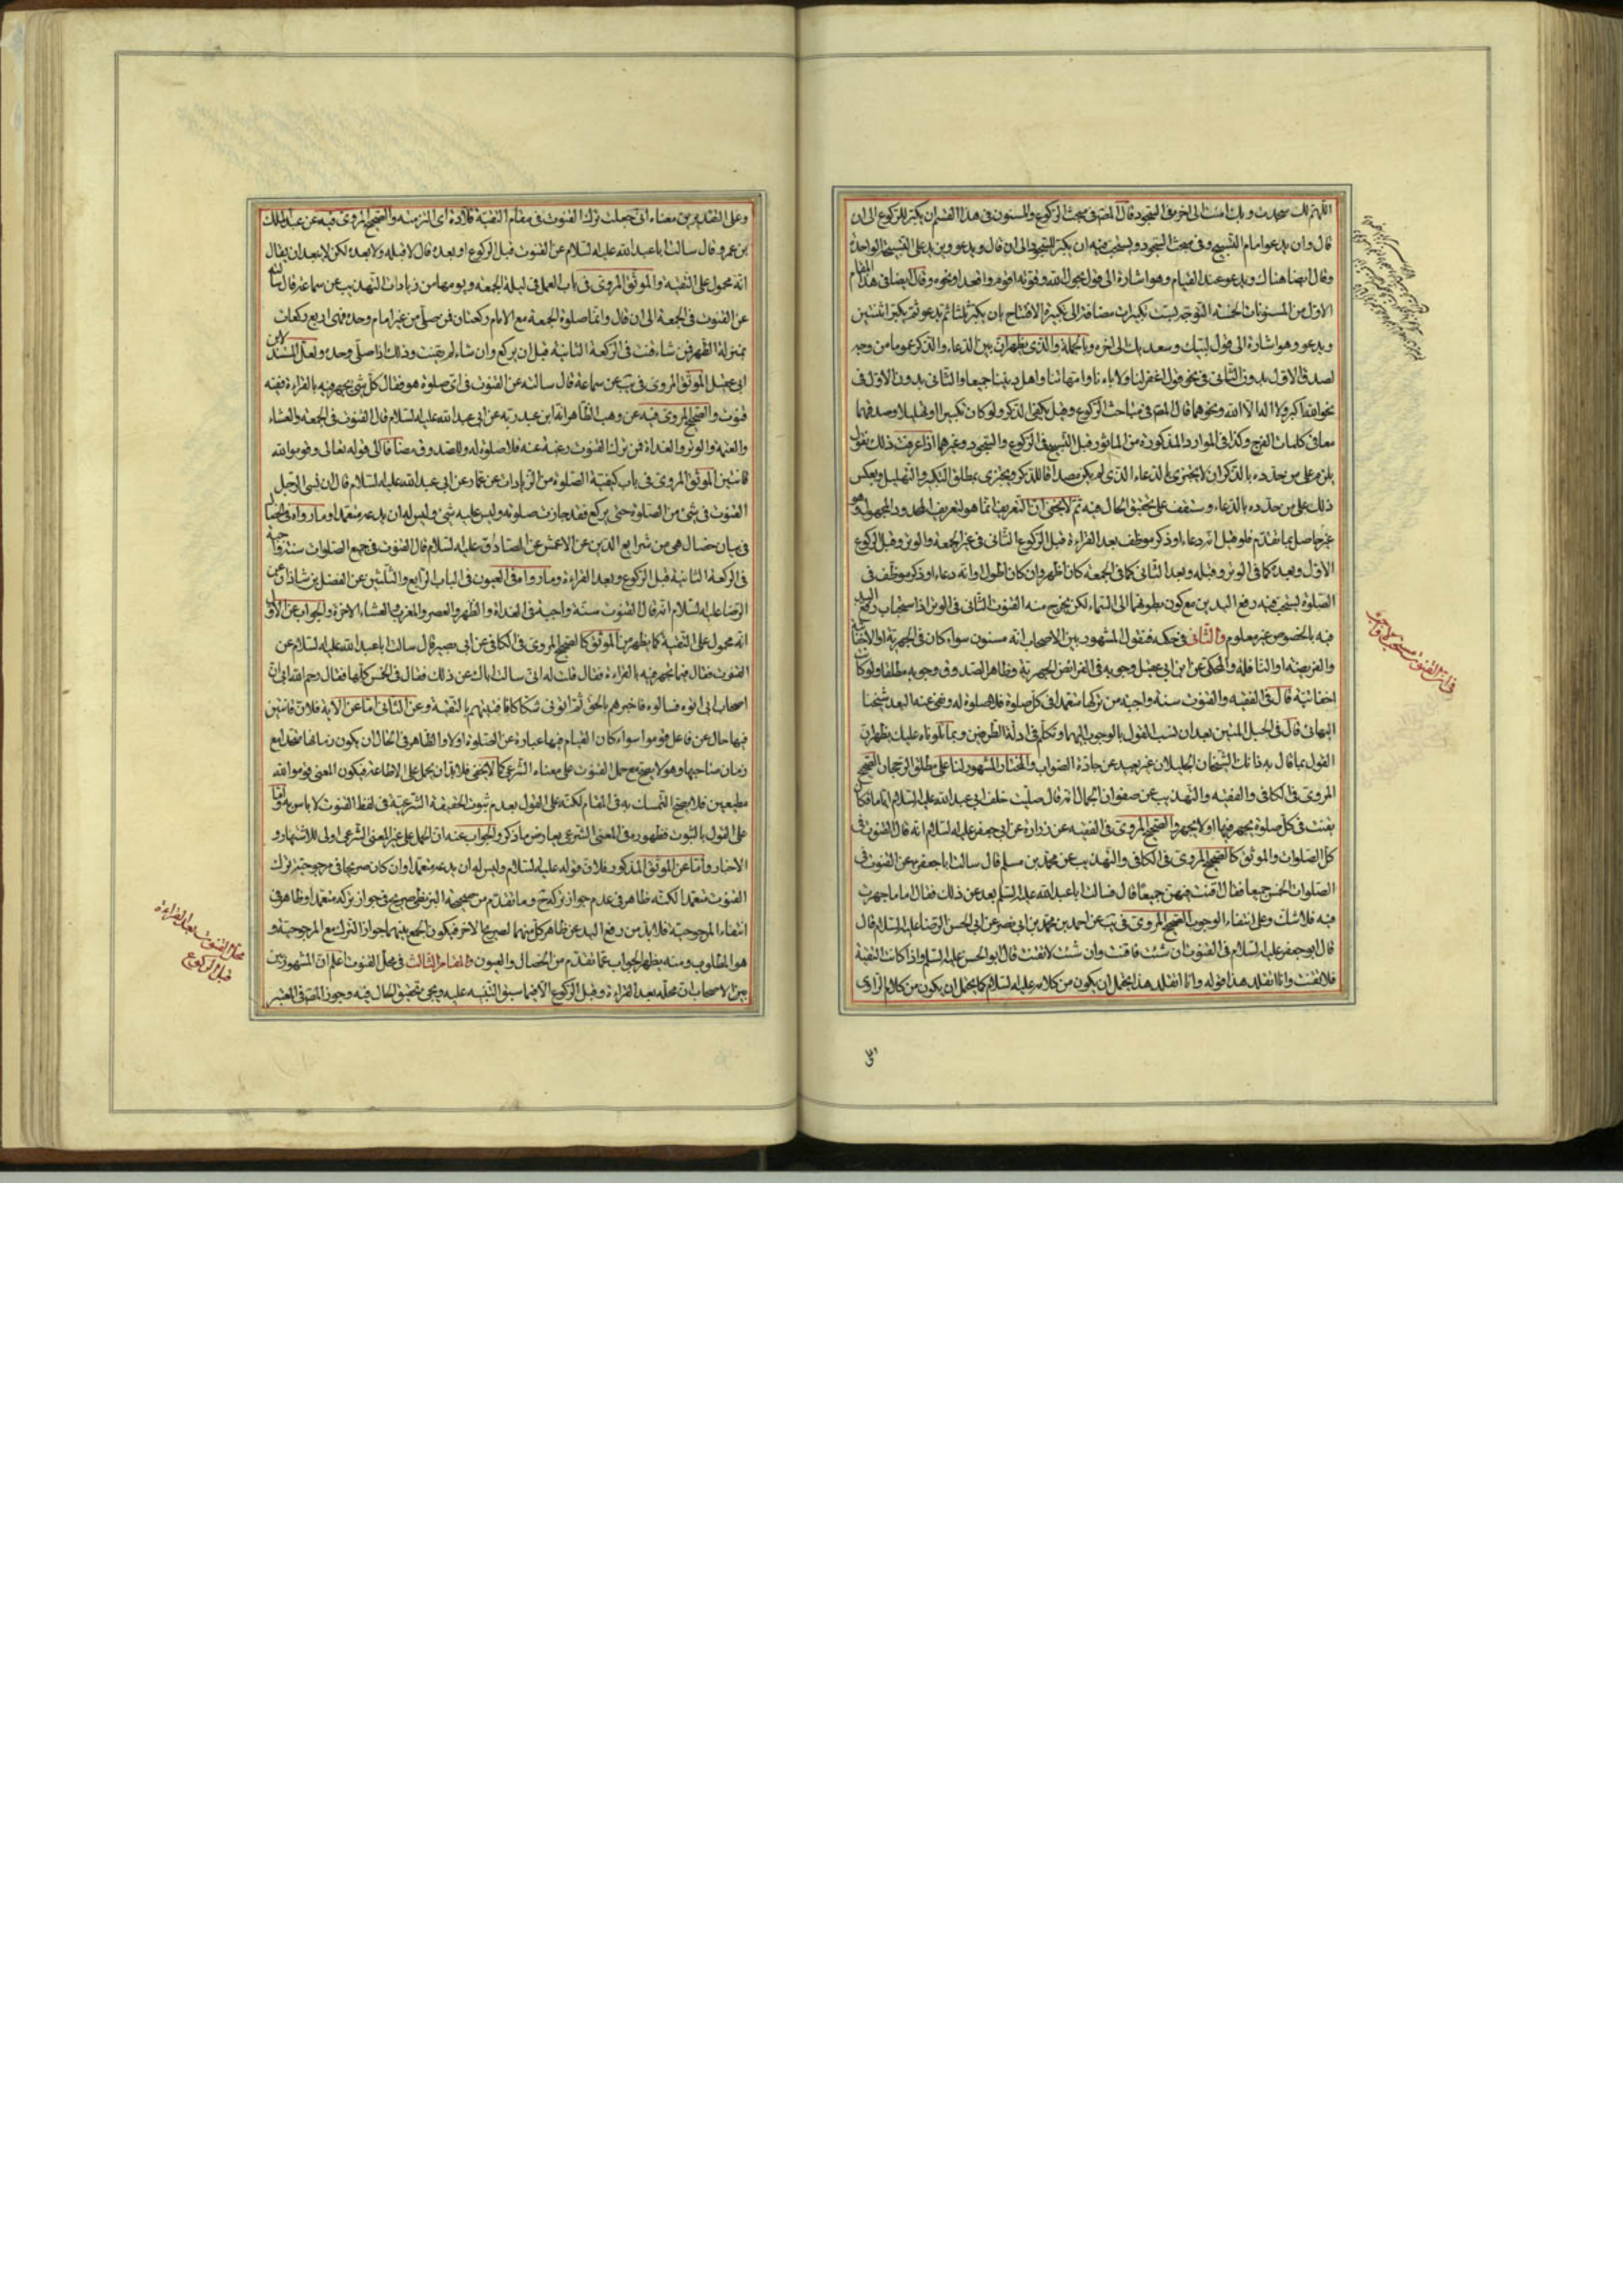 اللهم لك سجدت وبك امنت الى اخره في السجود قال المصنف في مبحث الركوع والمسنون في هذا القسم ان يكبر للركوع الى ان
قال وان يدعو امام التسبيح وفي مبحث السجود ويستحب فيه ان يكبر للسجود الى ان قال ويدعو ويزيد على التسبيحة الواحدة
وقال ايضا هناك ويدعو عند القيام وهو اشارة الى قول بحول الله وقوته اقوم واقعد او نحوه وقال ايضا في هذا المقام
الاول من المسنونات الخمسة التوجه بست تكبيرات مضافة الى تكبيرة الافتتاح بان يكبر ثلثا ثم يدعو ثم يكبر اثنتين
ويدعو وهو اشارة الى قول لبيك وسعديك الى اخره وبالجملة والذي يظهر ان بين الدعاء والذكر عموما من وجه
لصدق الاول بدون الثاني في نحو قول اغفر لنا ولاباءنا وامهاتنا واهل ديننا جميعا والثاني بدون الاول في
نحو الله اكبر ولا اله الا الله ونحوهما قال المصنف في مباحث الركوع وقيل يكفي الذكر ولو كان تكبيرا او تهليلا وصدقهما
معا في كلمات الفرج وكذا في الموارد المذكورة من الماثور قبل التسبيح في الركوع والسجود وغيرهما اذا عرفت ذلك نقول
يلزم على من حدده بالذكر ان لا يجتزي بالدعاء الذي لم يكن مصداقا للذكر ويجتزي بمطلق التكبير والتهليل وبعكس
ذلك على من حدده بالدعاء وستقف على تحقيق الحال فيه ثم لا يخفى ان التعريف انما هو لتعريف المحدود المجهول وهو
غير حاصل بما تقدم فلو قيل انه دعاء او ذكر موظف بعد القراءة قبل الركوع الثاني في غير الجمعة والوتر وقبل الركوع
الاول وبعده كما في الوتر وقبله وبعد الثاني كما في الجمعة كان اظهر وان كان اطول او انه دعاء او ذكر موظف في
الصلوة يستحب فيه رفع اليدين مع كون بطونهما الى السماء لكن يخرج منه القنوت الثاني في الوتر اذ استحباب رفع اليد
فيه بالخصوص غير معلوم والثاني في حكمه فنقول المشهور بين الاصحاب انه مسنون سواء كان في الجهرية او الاخفاتية
والفريضة او النافلة والمحكي عن ابن ابي عقيل وجوبه في الفرائض الجهرية وظاهر الصدوق وجوبه مطلقا ولو كان
اخفاتية قال في الفقيه والقنوت سنة واجبة من تركها متعمدا في كل صلوة فلا صلوة له ونفى عنه البعد شيخنا
البهائي قال في الحبل المتين بعد ان نسب القول بالوجوب اليهما وتكلم في ادلة الطرفين وبما تلوناه عليك يظهر ان
القول بما قال به ذانك الشيخان الجليلان غير بعيد عن جادة الصواب والمختار المشهور لنا على مطلق الرجحان الصحيح
المروي في الكافي والفقيه والتهذيب عن صفوان الجمال انه قال صليت خلف ابي عبد الله عليه السلام اياما فكان
يقنت في كل صلوة يجهر فيها او لا يجهر والصحيح المروي في الفقيه عن زرارة عن ابي جعفر عليه السلام انه قال القنوت في
كل الصلوات والموثق كالصحيح المروي في الكافي والتهذيب عن محمد بن مسلم قال سالت ابا جعفر عن القنوت في
الصلوات الخمس جميعا فقال اقنت فيهن جميعا قال فسالت ابا عبد الله عليه السلم بعد عن ذلك فقال اما ما جهرت
فيه فلا شك وعلى انتفاء الوجوب الصحيح المروي في يب عن احمد بن محمد بن ابي نصر عن ابي الحسن الرضا عليه السلام قال
قال ابو جعفر عليه السلام في القنوت ان شئت فاقنت وان شئت لا تقنت قال ابو الحسن عليه السلم واذا كانت التقية
فلا تقنت وانا اتقلد هذا قوله وانا اتقلد هذا يحتمل ان يكون من كلامه عليه السلام كما يحتمل ان يكون من كلام الراوي
في ان القنوت مستحب او واجب
وعلى التقديرين معناه اني جعلت ترك القنوت في مقام التقية قلادة اي التزمته والصحيح المروي فيه عن عبد الملك
بن عمرو قال سالت ابا عبد الله عليه السلام عن القنوت قبل الركوع او بعده قال لا قبله ولا بعده لكن لا يبعد ان يقال
انه محمول على التقية والموثق المروي في باب العمل في ليلة الجمعة ويومها من زيادات التهذيب عن سماعة قال سالته
عن القنوت في الجمعة الى ان قال وانما صلوة الجمعة مع الامام ركعتان فمن صلى من غير امام وحده فهي اربع ركعات
بمنزلة الظهر فمن شاء قنت في الركعة الثانية قبل ان يركع وان شاء لم يقنت وذلك اذا صلى وحده ولعل المستند لابن
ابي عقيل الموثق المروي في يب عن سماعة قال سالته عن القنوت في اي صلوة هو فقال كل شيء يجهر فيه بالقراءة ففيه
قنوت والصحيح المروي فيه عن وهب الظاهر انه ابن عبد ربه عن ابي عبد الله عليه السلام قال القنوت في الجمعة والعشاء
والعتمة والوتر والغداة فمن ترك القنوت رغبة عنه فلا صلوة له وللصدوق مضافا الى قوله تعالى وقوموا لله
قانتين الموثق المروي في باب كيفية الصلوة من الزيادات عن عمار عن ابي عبد الله عليه السلام قال ان نسي الرجل
القنوت في شيء من الصلوة حتى يركع فقد جازت صلوته وليس عليه شيء وليس له ان يدعه متعمدا وما رواه في الخصال
في بيان خصال هي من شرايع الدين عن الاعمش عن الصادق عليه السلام قال القنوت في جميع الصلوات سنة واجبة
في الركعة الثانية قبل الركوع وبعد القراءة وما رواه في العيون في الباب الرابع والثلثين عن الفضل بن شاذان عن
الرضا عليه السلام انه قال القنوت سنة واجبة في الغداة والظهر والعصر والمغرب والعشاء الاخرة والجواب عن الاول
انه محمول على التقية كما يظهر من الموثق كالصحيح المروي في الكافي عن ابي بصير قال سالت ابا عبد الله عليه السلام عن
القنوت فقال فيما تجهر فيه بالقراءة فقال قلت له اني سالت اباك عن ذلك فقال في الخمس كلها فقال رحم الله ابي ان
اصحاب ابي اتوه فسالوه فاخبرهم بالحق ثم اتوني شكاكا فافتيتهم بالتقية وعن الثاني اما عن الاية فلان قانتين
فيها حال عن فاعل قوموا سواء كان القيام فيها عبارة عن الصلوة اولا والظاهر في الحال ان يكون زمانها متحدا مع
زمان صاحبها وهو لا يصح مع حمل القنوت على معناه الشرعي كما لا يخفى فلا بد ان يحمل على الاطاعة فيكون المعنى قوموا لله
مطيعين فلا يصح التمسك به في المقام لكنه على القول بعدم ثبوت الحقيقة الشرعية في لفظ القنوت لا باس به واما
على القول بالثبوت فظهوره في المعنى الشرعي يعارض ما ذكر والجواب عنه ان الحمل على غير المعنى الشرعي اولى للاشتهار و
الاخبار واما عن الموثق المذكور فلان قوله عليه السلام وليس له ان يدعه متعمدا وان كان صريحا في مرجوحية ترك
القنوت متعمدا لكنه ظاهر في عدم جواز تركه ح وما تقدم من صحيحة البزنطي صريح في جواز تركه متعمدا وظاهر في
انتفاء المرجوحية فلا بد من رفع اليد عن ظاهر كل منهما لصريح الاخر فيكون الجمع بينهما جواز الترك مع المرجوحية و
هو المطلوب ومنه يظهر الجواب عما تقدم من الخصال والعيون والمقام الثالث في محل القنوت اعلم ان المشهور بين
بين الاصحاب ان محله بعد القراءة وقبل الركوع الا فيما سبق التنبيه عليه ويجيء تحقيق الحال فيه وجوز المصنف في المعتبر
محل القنوت بعد القراءة
قبل الركوع